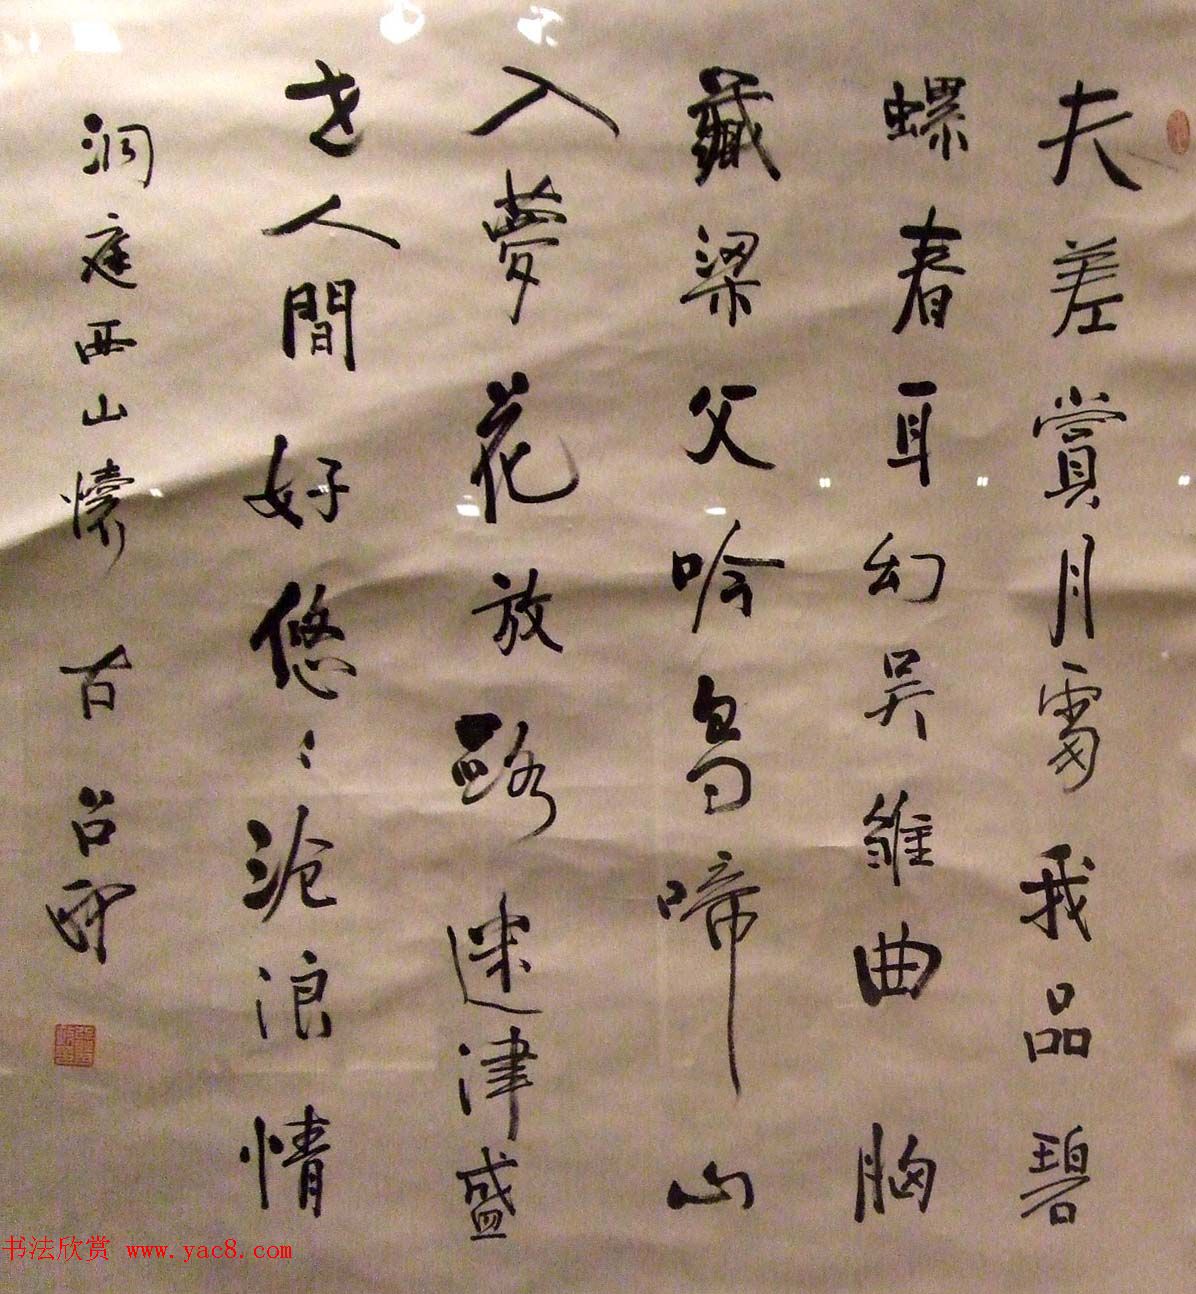 夫差賞月雾我品碧
螺春耳幻吴雏曲胸
藏梁父吟烏啼山
入夢花放路迷津盛
世人間好悠〻滄浪情
洞庭西山懷 古
书法欣赏 www.yac8.com